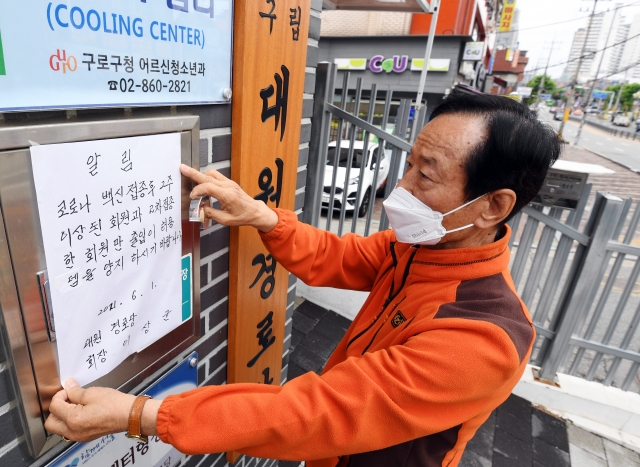 (COOLING CENTER)
GURO 구로구청 어르신청소년과
☎02-860-2821
구립
대원경로
알림
코로나 백신접종후 2주
이상된 회원과 2차접종
한 회원만 출입이 허용
됨을 양지 하시기 바랍니다.
2021. 6. 1.
대원 경로당
회장 이상균
CU